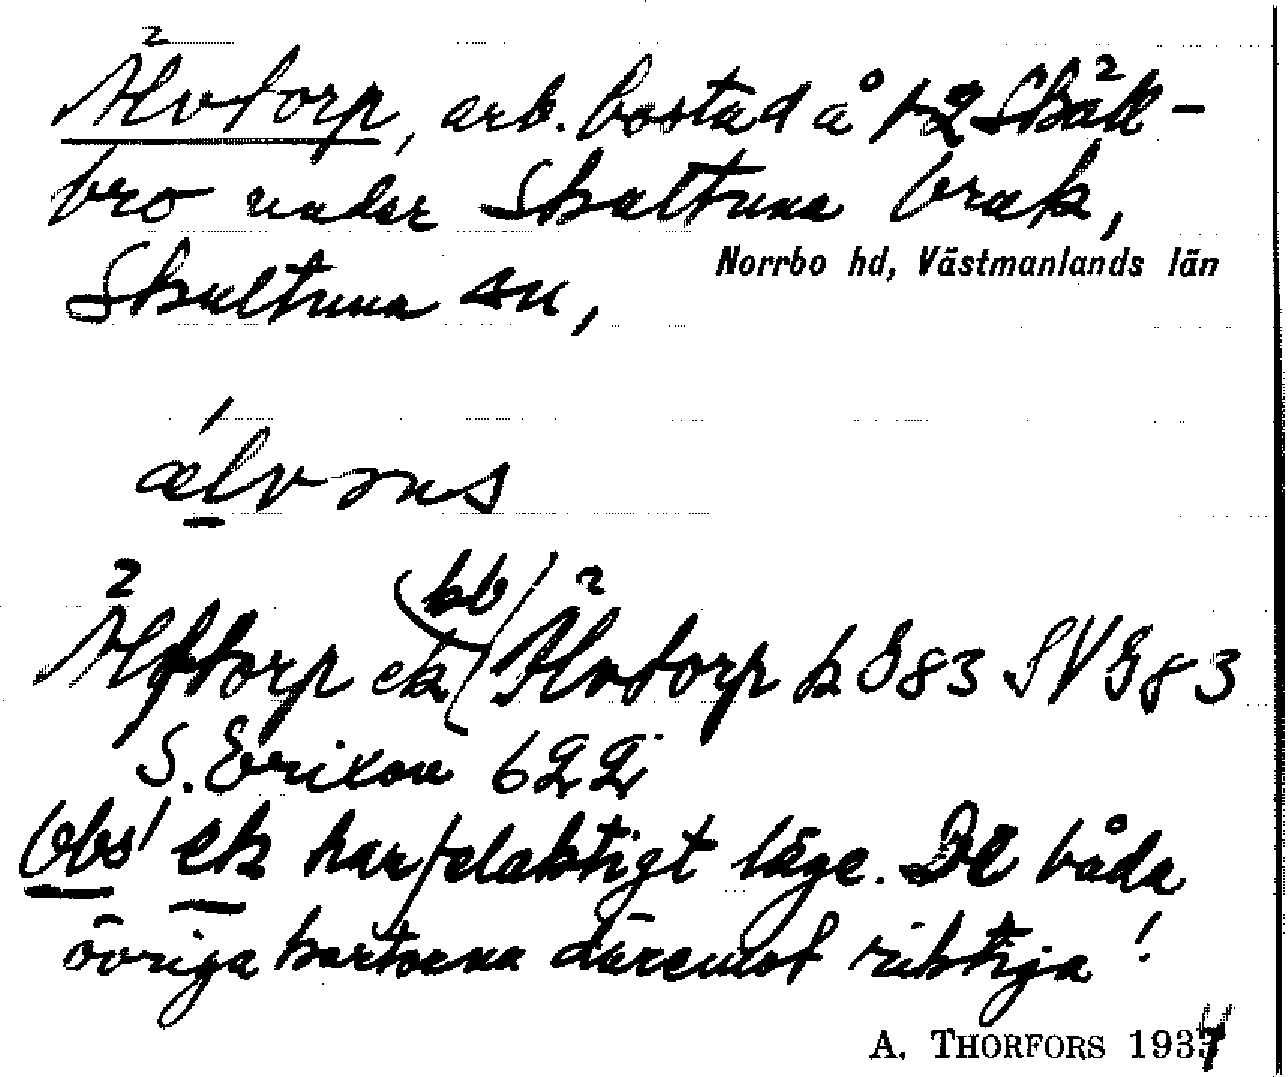 Älvtorp, arb. bostad å 1-2 Skäll-
bro under Skultuna bruk,
Skultuna sn,
Norrbo hd, Västmanlands län
ælvəns
Älftorp ek (kb) Älvtorp k S83 SV S83
S. Erixon 622
Obs! ek har felaktigt läge. De båda
övriga kartorna däremot riktiga!
A. THORFORS 1934